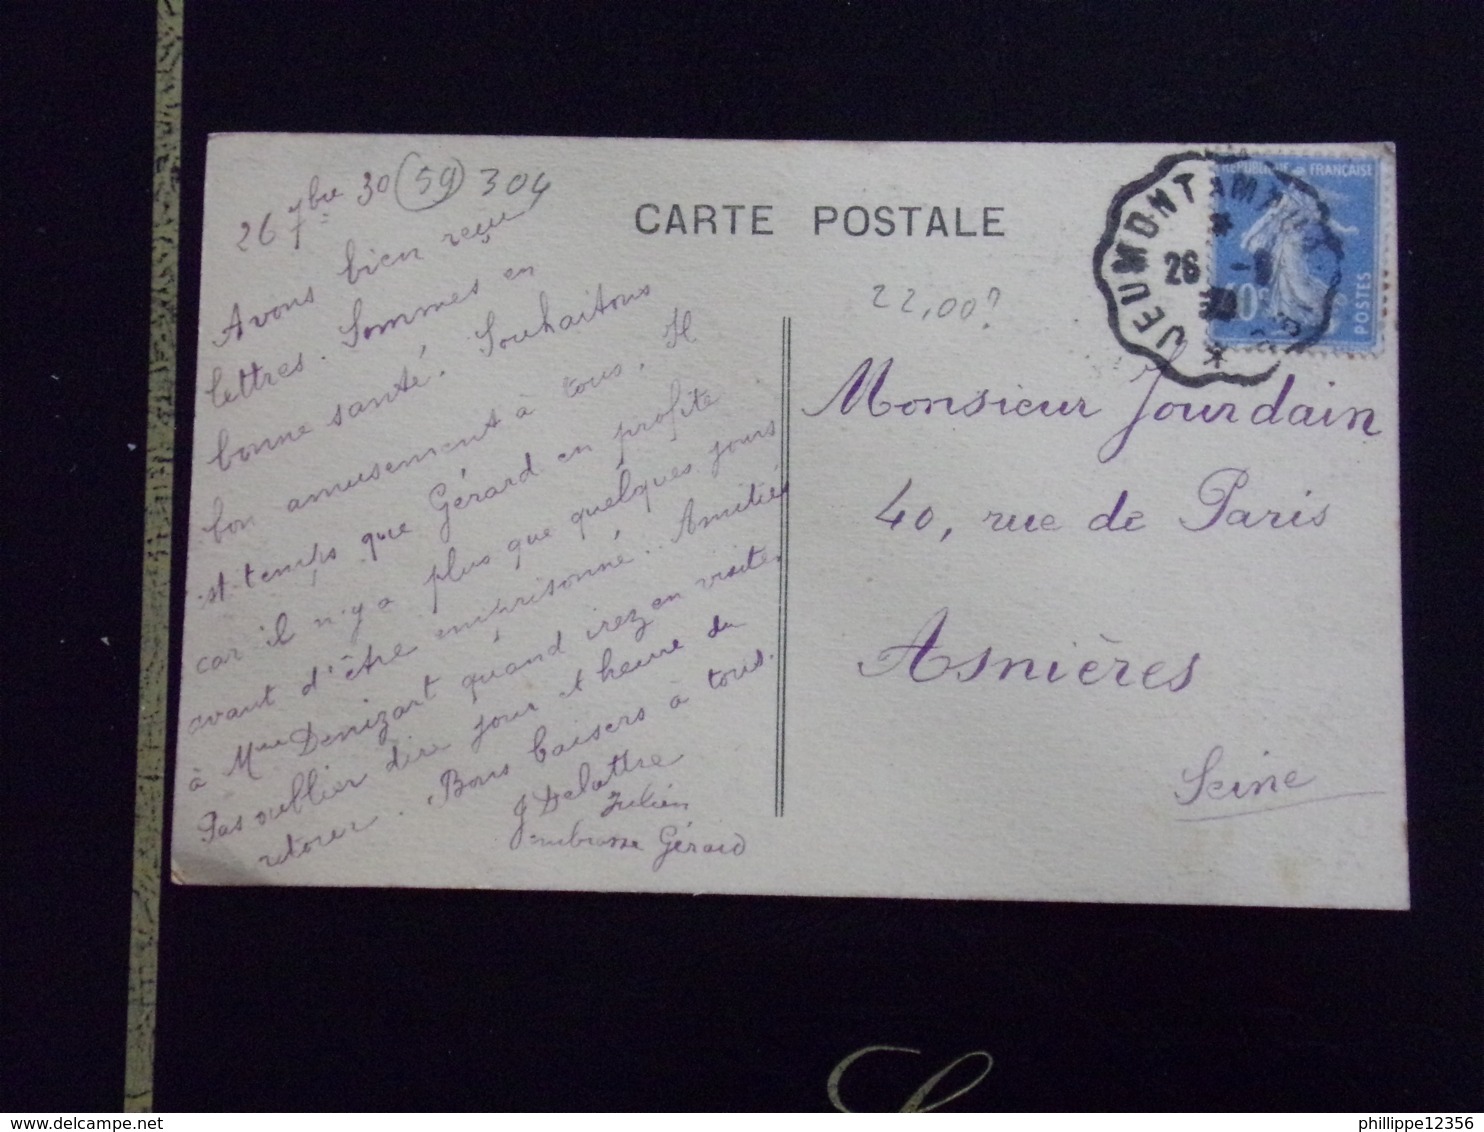 26 7bre 30 (59) 304
Avons bien reçu
lettres. Sommes en
bonne santé. Souhaitons
bon amusement à tous. Il
st temps que Gérard en profite
car il n'y a plus que quelques jours
avant d'être emprisonné. Amitiés
à Mme Denizart quand irez en visite.
Pas oublier dire jour et heure du
retour. Bons baisers à tous.
J Delattre
Julien
embrasse Gérard
CARTE POSTALE
22,00?
Monsieur Jourdain
40, rue de Paris
Asnières
Seine
JEUMONT A MAUB
26 -9
30
REPUBLIQUE FRANÇAISE
40c
POSTES
philippe12356